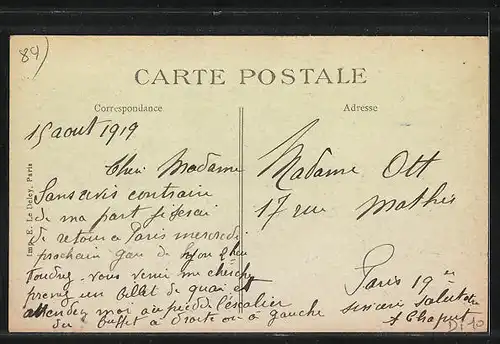 84)
CARTE POSTALE
Correspondance
Adresse
Imp. E. Le Deley, Paris
15 aout 1919
Chère Madame
Sans avis contraire
de ma part je serai
de retour a Paris mercredi
prochain gare de Lyon
Voudrez-vous venir me chercher
prenez un billet de quai et
attendez moi au pied de l'escalier
du buffet à droite ou à gauche
Madame Ott
17 rue Mathis
Paris 19e
sincère salut de
A Chaput
D.f 10